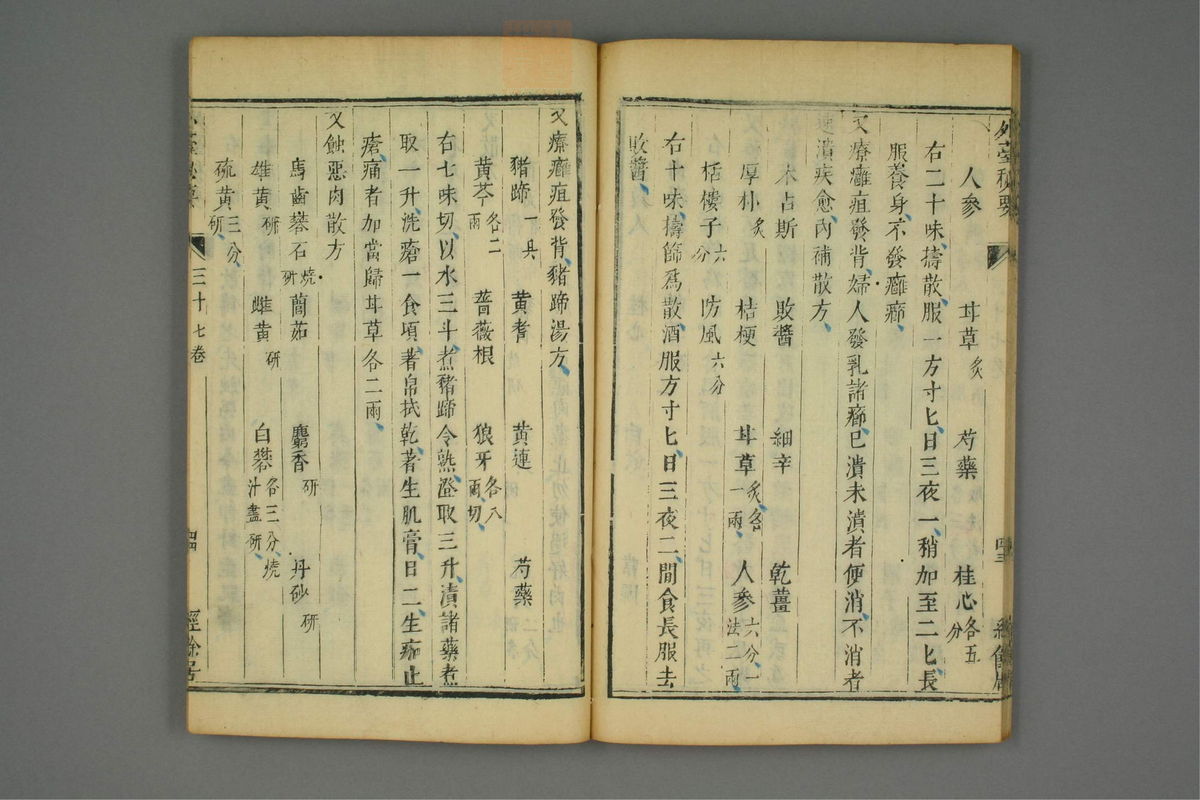 外臺秘要
人參 甘草炙 芍藥 桂心各五分
右二十味擣散服一方寸匕日三夜一稍加至二匕長
服養身不發癰癤
又療癰疽發背婦人發乳諸癤已潰未潰者便消不消者
速潰疾愈內補散方
木占斯 敗醬 細辛 乾薑
厚朴炙 桔梗 甘草炙各一兩 人參六分一法二兩
栝樓子六分 防風六分
右十味擣篩爲散酒服方寸匕日三夜二閒食長服去
敗醬
又療癰疽發背豬蹄湯方
豬蹄一具 黃耆 黃連 芍藥
黃芩各二兩 薔薇根 狼牙各八兩切
右七味切以水三斗煮豬蹄令熟澄取三升漬諸藥煮
取一升洗瘡一食頃著帛拭乾著生肌膏日二生痂止
瘡痛者加當歸甘草各二兩
又蝕惡肉散方
馬齒礬石燒研 䕡茹 麝香研 丹砂研
雄黃研 雌黃研 白礬各三分燒汁盡研
硫黃三分研
三十七卷
經餘居